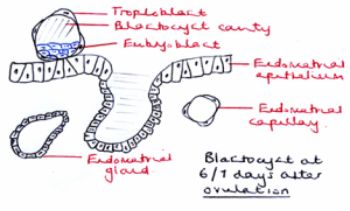 Trophoblast
Blastocyst cavity
Embryoblast
Endometrial
epithelium
Endometrial
capillary
Endometrial
gland
Blastocyst at
6/7 days after
ovulation